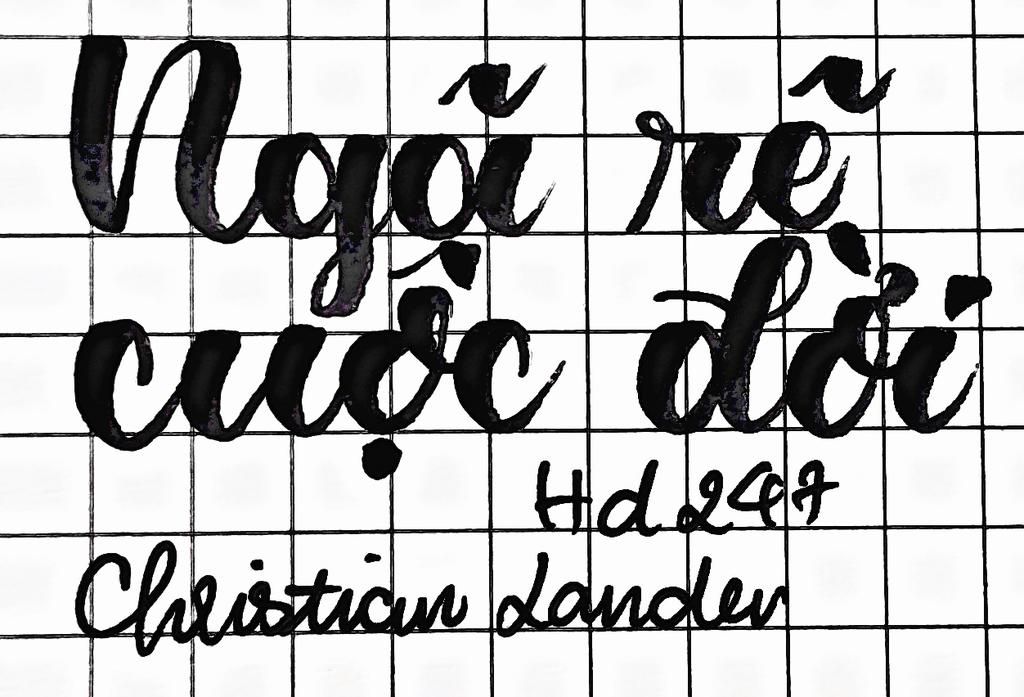 Ngõi rẽ
cuộc đời
Hd 247
Christian Lander